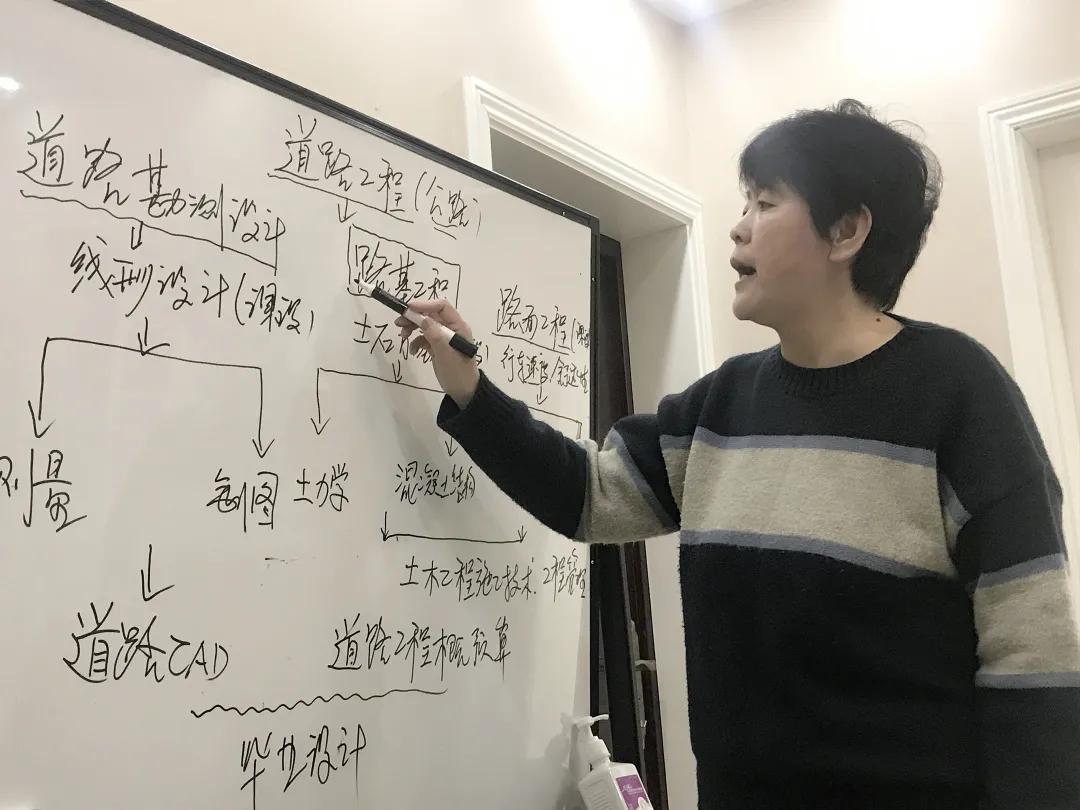 道路勘测设计
道路工程(公路)
线形设计(课设)
路基工程
路面工程
土石
行车速度
测量
制图
土力学
混凝土结构
土木工程施工技术.工程管理
道路CAD
道路工程概预算
毕业设计